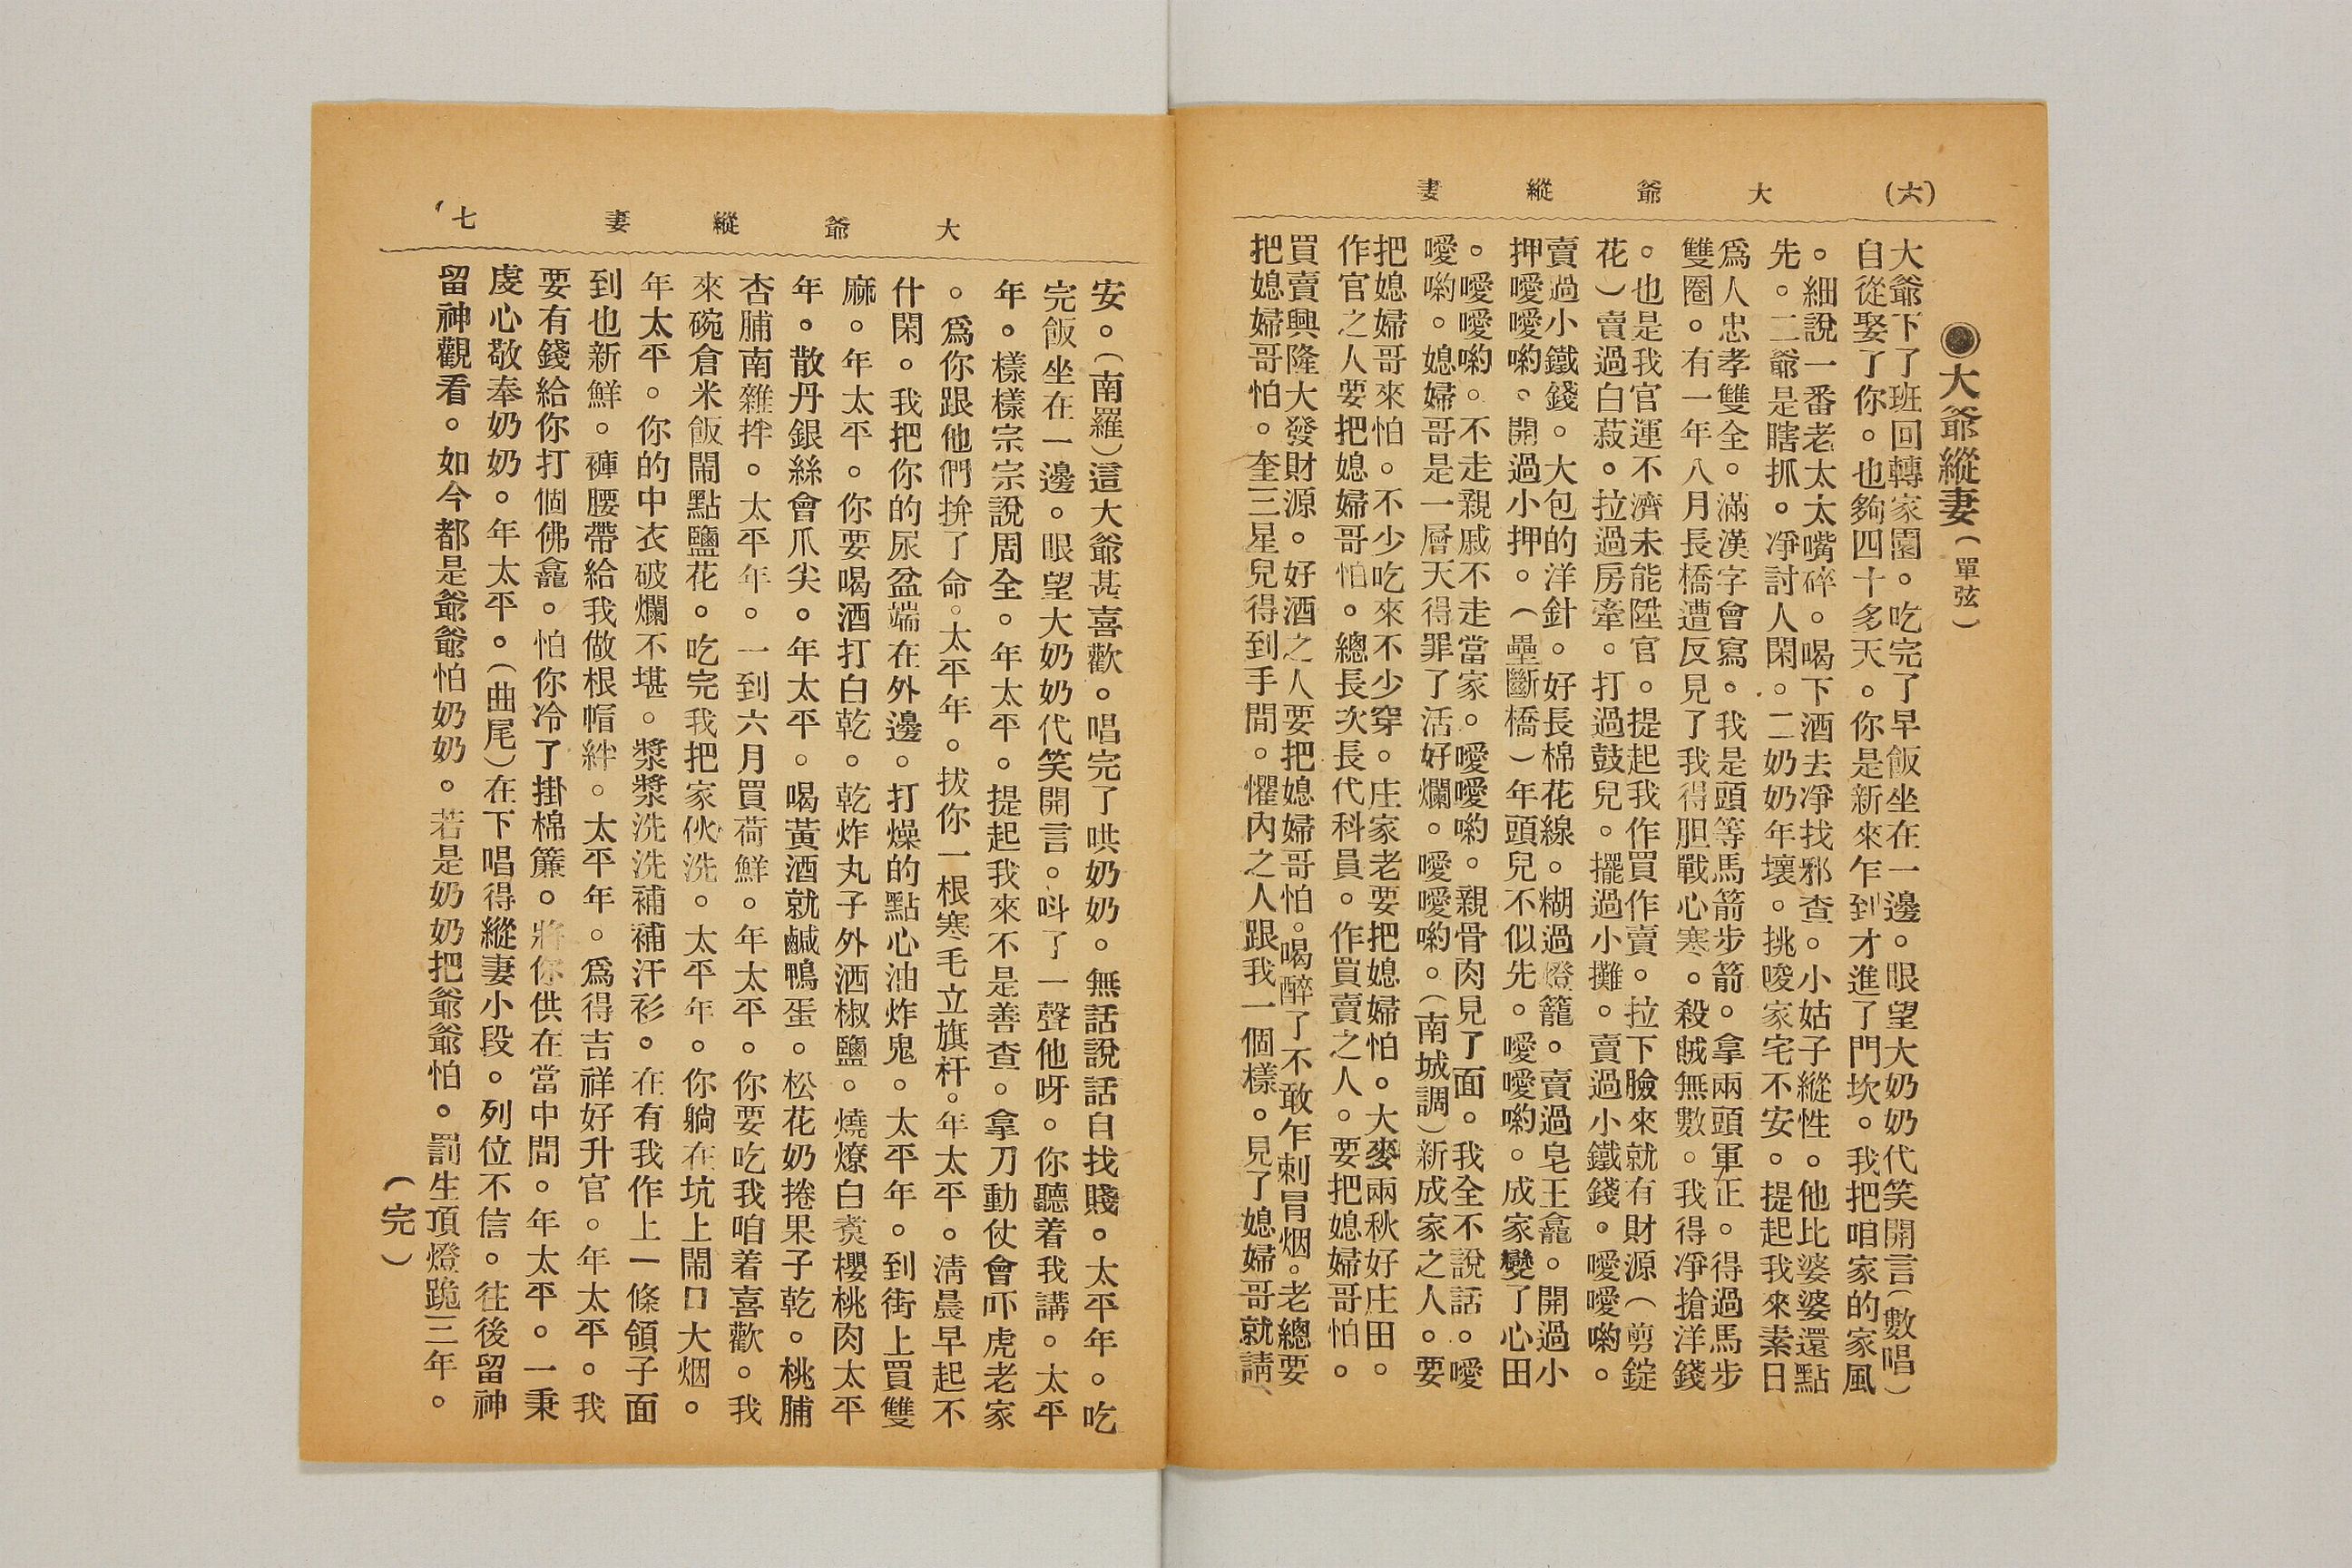 (六)
大爺縱妻
●大爺縱妻(單弦)
大爺下了班回轉家園。吃完了早飯坐在一邊。眼望大奶奶代笑開言(數唱)
自從娶了你。也夠四十多天。你是新來乍到才進了門坎。我把咱家的家風
。細說一番老太太嘴碎。喝下酒去凈找邪查。小姑子縱性。他比婆婆還點
先。二爺是瞎抓。凈討人閑。二奶奶年壞。挑唆家宅不安。提起我來素日
爲人忠孝雙全。滿漢字會寫。我是頭等馬箭步箭。拿兩頭軍正。得過馬步
雙圈。有一年八月長橋遭反見了我得胆戰心寒。殺賊無數。我得凈搶洋錢
。也是我官運不濟未能陞官。提起我作買作賣。拉下臉來就有財源(剪錠
花)賣過白菽。拉過房牽。打過鼓兒。擺過小攤。賣過小鐵錢。噯噯喲。
賣過小鐵錢。大包的洋針。好長棉花線。糊過燈籠。賣過皂王龕。開過小
押噯噯喲。開過小押。(壘斷橋)年頭兒不似先。噯噯喲。成家變了心田
。噯噯喲。不走親戚不走當家。噯噯喲。親骨肉見了面。我全不說話。噯
噯喲。媳婦哥是一層天得罪了活好爛。噯噯喲。(南城調)新成家之人。要
把媳婦哥來怕。不少吃來不少穿。庄家老要把媳婦怕。大麥兩秋好庄田。
作官之人要把媳婦哥怕。總長次長代科員。作買賣之人。要把媳婦哥怕。
買賣興隆大發財源。好酒之人要把媳婦哥怕。喝醉了不敢乍刺冒烟。老總要
把媳婦哥怕。奎三星兒得到手間。懼內之人跟我一個樣。見了媳婦哥就請
七
大爺縱妻
安。(南羅)這大爺甚喜歡。唱完了哄奶奶。無話說話自找賤。太平年。吃
完飯坐在一邊。眼望大奶奶代笑開言。呌了一聲他呀。你聽着我講。太平
年。樣樣宗宗說周全。年太平。提起我來不是善查。拿刀動仗會吓虎老家
。爲你跟他們拚了命。太平年。拔你一根寒毛立旗杆。年太平。淸晨早起不
什閑。我把你的尿盆端在外邊。打燥的點心油炸鬼。太平年。到街上買雙
麻。年太平。你要喝酒打白乾。乾炸丸子外洒椒鹽。燒燎白煑櫻桃肉太平
年。散丹銀絲會爪尖。年太平。喝黃酒就鹹鴨蛋。松花奶捲果子乾。桃脯
杏脯南雜拌。太平年。一到六月買荷鮮。年太平。你要吃我咱着喜歡。我
來碗倉米飯閙點鹽花。吃完我把家伙洗。太平年。你躺在坑上閙口大烟。
年太平。你的中衣破爛不堪。漿漿洗洗補補汗衫。在有我作上一條領子面
到也新鮮。褲腰帶給我做根帽絆。太平年。爲得吉祥好升官。年太平。我
要有錢給你打個佛龕。怕你冷了掛棉簾。將你供在當中間。年太平。一秉
虔心敬奉奶奶。年太平。(曲尾)在下唱得縱妻小段。列位不信。往後留神
留神觀看。如今都是爺爺怕奶奶。若是奶奶把爺爺怕。罰生頂燈跪三年。
(完)